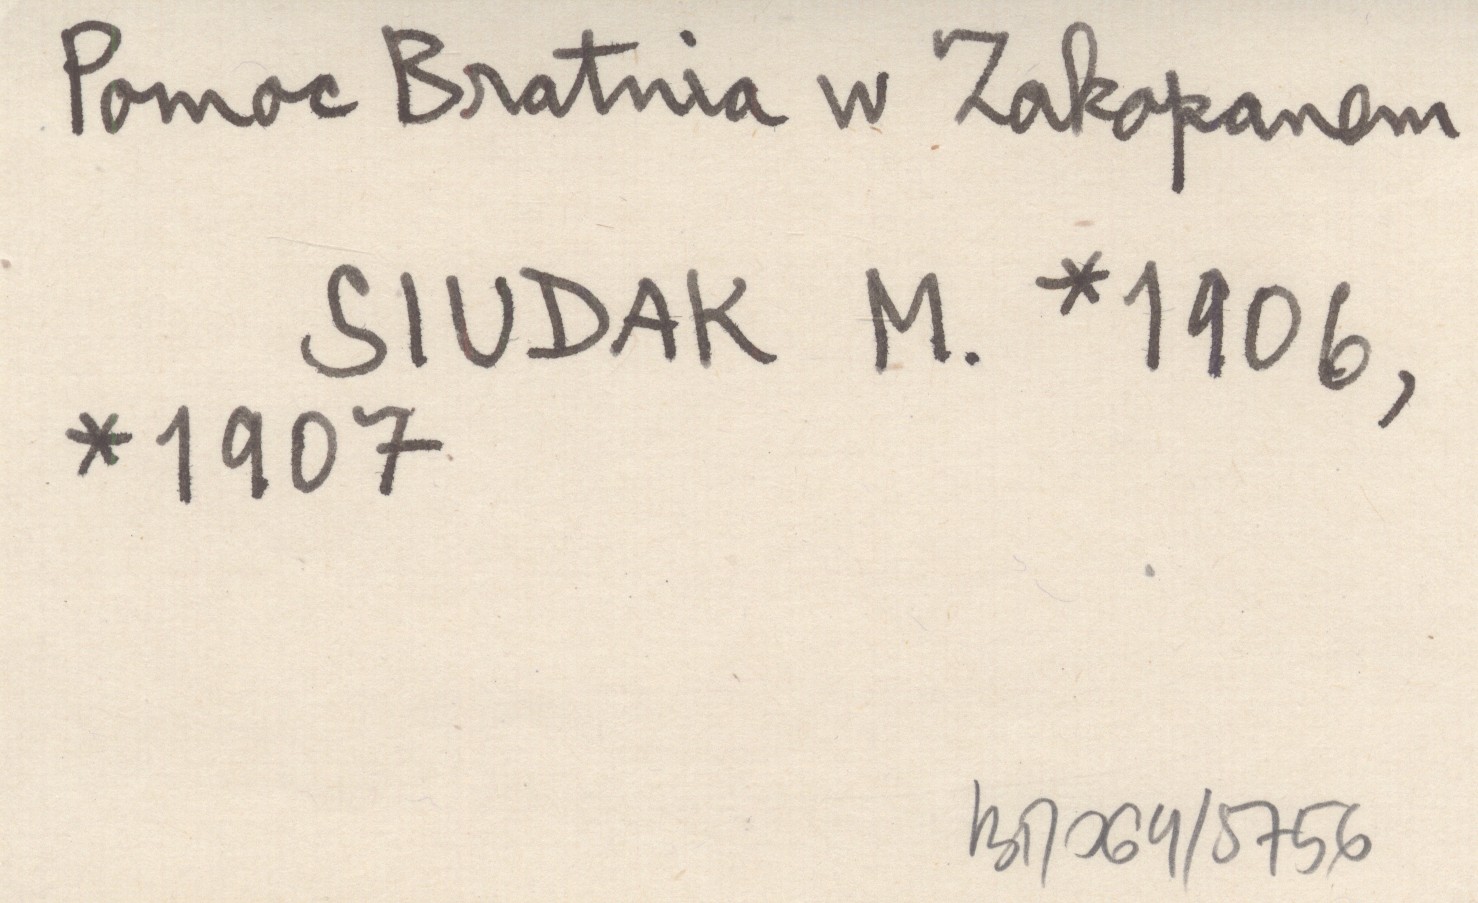 Pomoc Bratnia w Zakopanem
SIUDAK M. *1906,
*1907